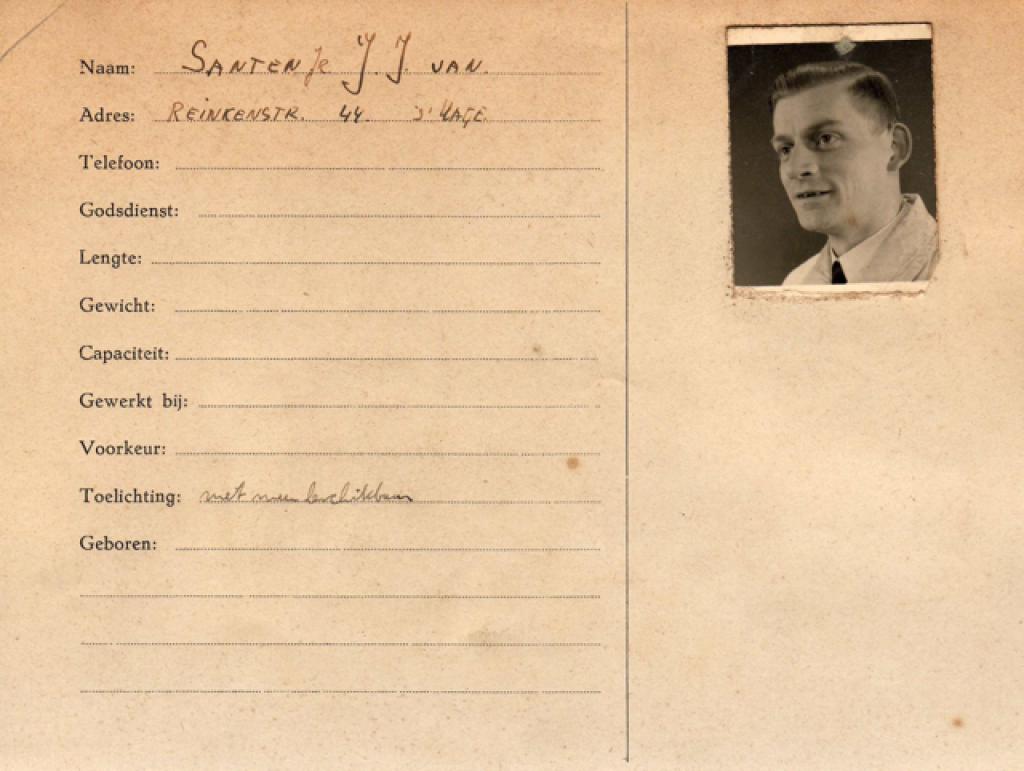 Naam: SANTEN Je J. J. VAN.
Adres: REINKENSTR. 44. S'HAGE.
Telefoon:
Godsdienst:
Lengte:
Gewicht:
Capaciteit:
Gewerkt bij:
Voorkeur:
Toelichting: niet meer beschikbaar
Geboren: